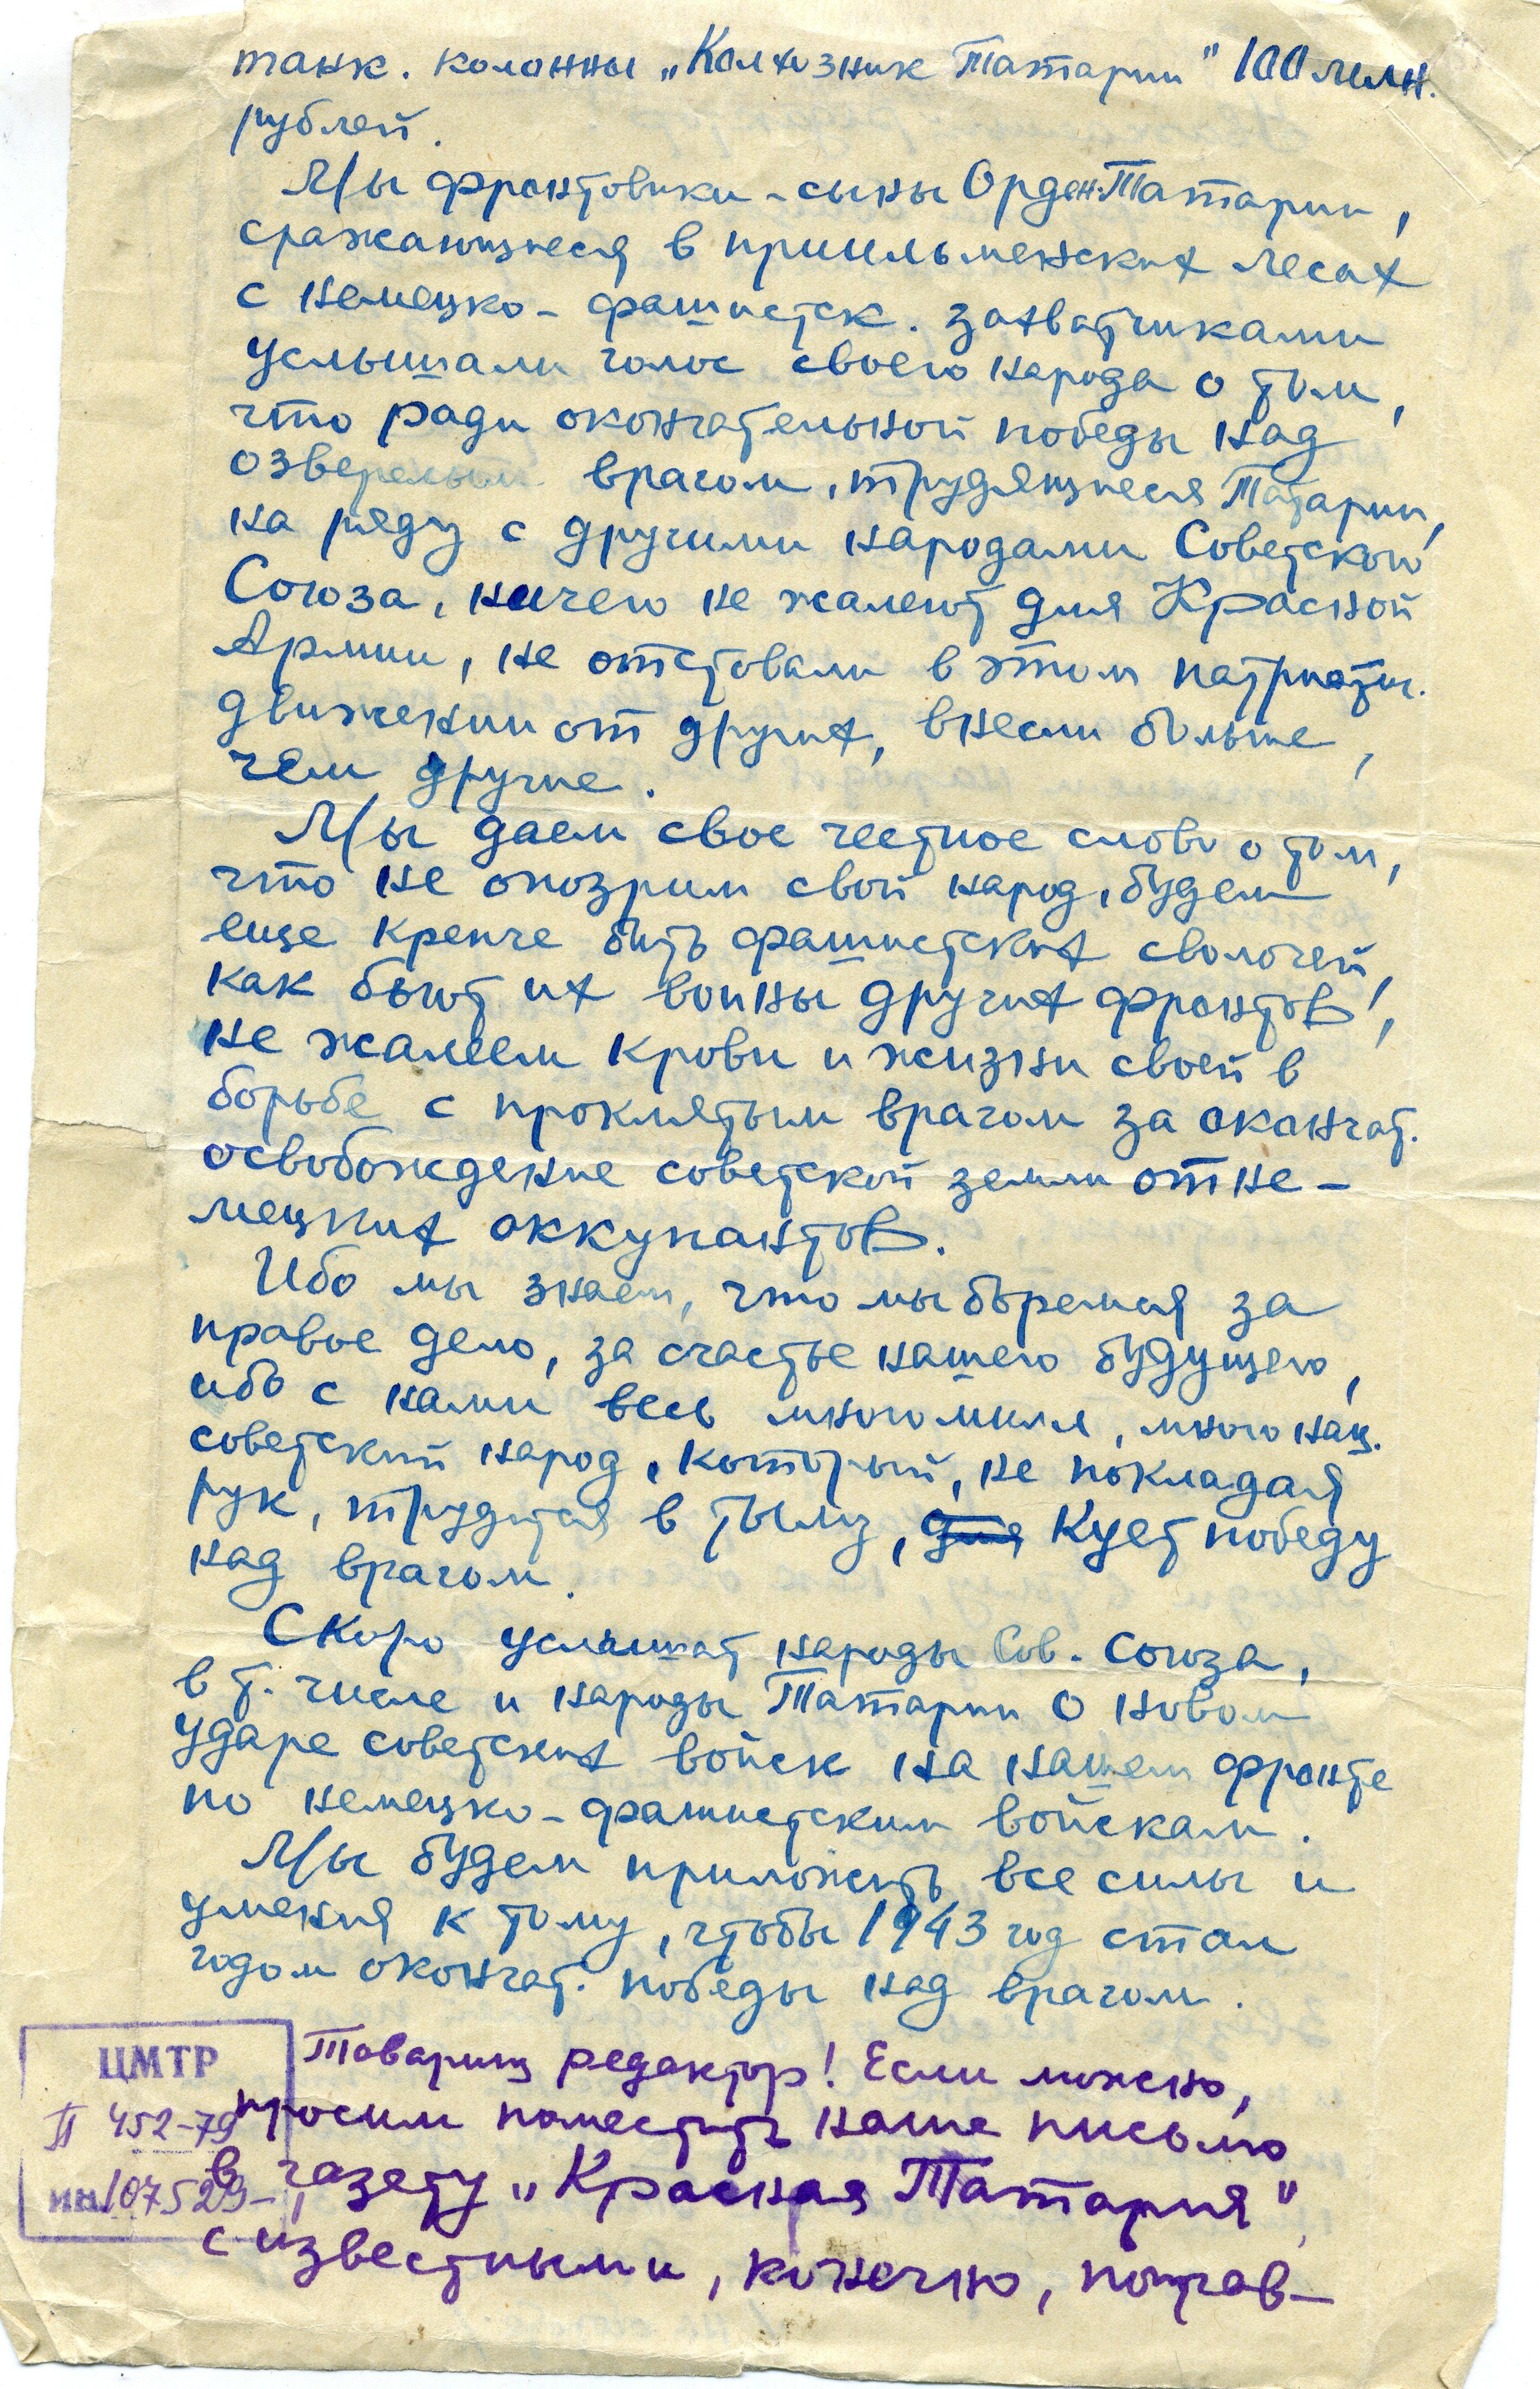 танк. колонны „Колхозник Татарии" 100 милн.
рублей.
Мы фронтовики - сыны Орден. Татарии,
сражающиеся в приильменских лесах
с немецко - фашистск. захватчиками
услышали голос своего народа о том,
что ради окончательной победы над
озверелым врагом, трудящиеся Татарии,
на ряду с другими народами Советского
Союза, ничего не жалеют для Красной
Армии, не отставали в этом патриотич.
движении от других, внесли больше,
чем другие.
Мы даем свое честное слово о том,
что не опозрим свой народ, будем
еще крепче бить фашистских сволочей,
как бьют их воины других фронтов,
не жалеем крови и жизни своей в
борьбе с проклятым врагом за окончат.
освобождение советской земли от не-
мецких оккупантов.
Ибо мы знаем, что мы боремся за
правое дело, за счастье нашего будущего,
ибо с нами весь многомилл, многонац.
советский народ, который, не покладая
рук, трудится в тылу, для кует победу
над врагом.
Скоро услышат народы Сов. Союза,
в т. числе и народы Татарии о новом
ударе советских войск на нашем фронте
по немецко-фашистским войскам.
Мы будем приложить все силы и
умения к тому, чтобы 1943 год стал
годом окончат. победы над врагом.
Товарищ редактор! Если можно,
просим поместить наше письмо
в газету „Красная Татария",
с известными, конечно, поправ-
ЦМТР
П 452-79
ин. 107529-